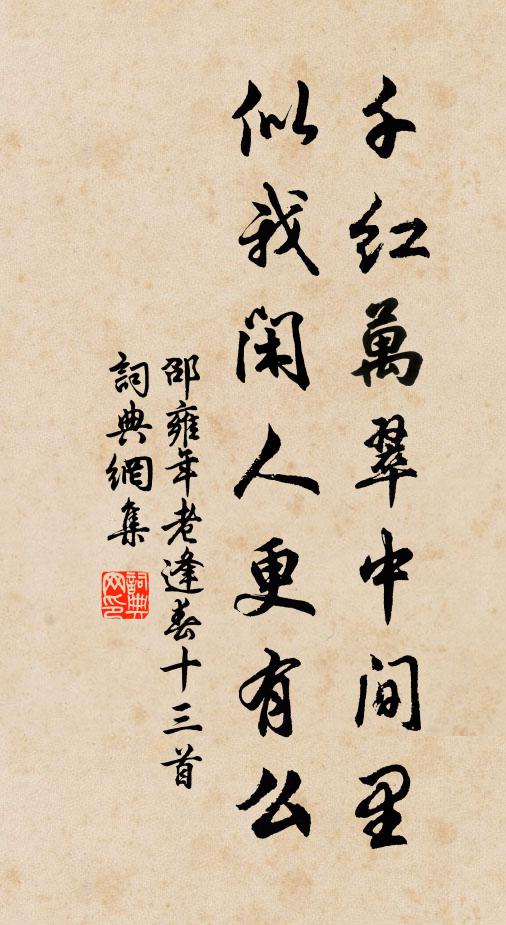 千红萬翠中间里
似我闲人更有么
邵雍年老逢春十三首
詞典網集
詞典网印